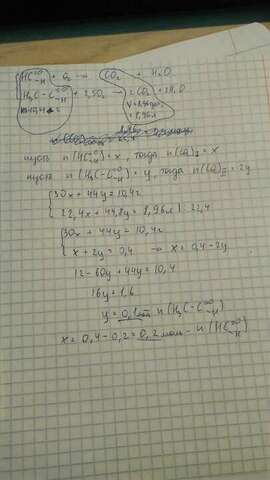 HC=O-H + O₂ → CO₂ + H₂O
H₃C-C=O-H + 2,5O₂ → 2CO₂ + 2H₂O
= 8,96л
пусть n(HC=O-H) = x, тогда n(CO₂)I = x
пусть n(H₃C-C=O-H) = y, тогда n(CO₂)II = 2y
30x + 44y = 10,4г
22,4x + 44,8y = 8,96л | : 22,4
30x + 44y = 10,4г
x + 2y = 0,4 → x = 0,4-2y
12-60y + 44y = 10,4
16y = 1,6
y = 0,1 моль n(H₃C-C=O-H)
x = 0,4-0,2 = 0,2 моль - n(HC=O-H)